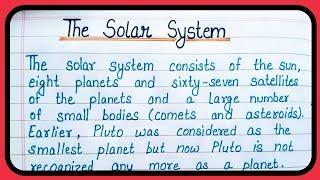 The Solar System
The solar system consists of the sun,
eight planets and sixty-seven satellites
of the planets and a large number
of small bodies (comets and asteroids).
Earlier, Pluto was considered as the
smallest planet but now Pluto is not
recognized any more as a planet.